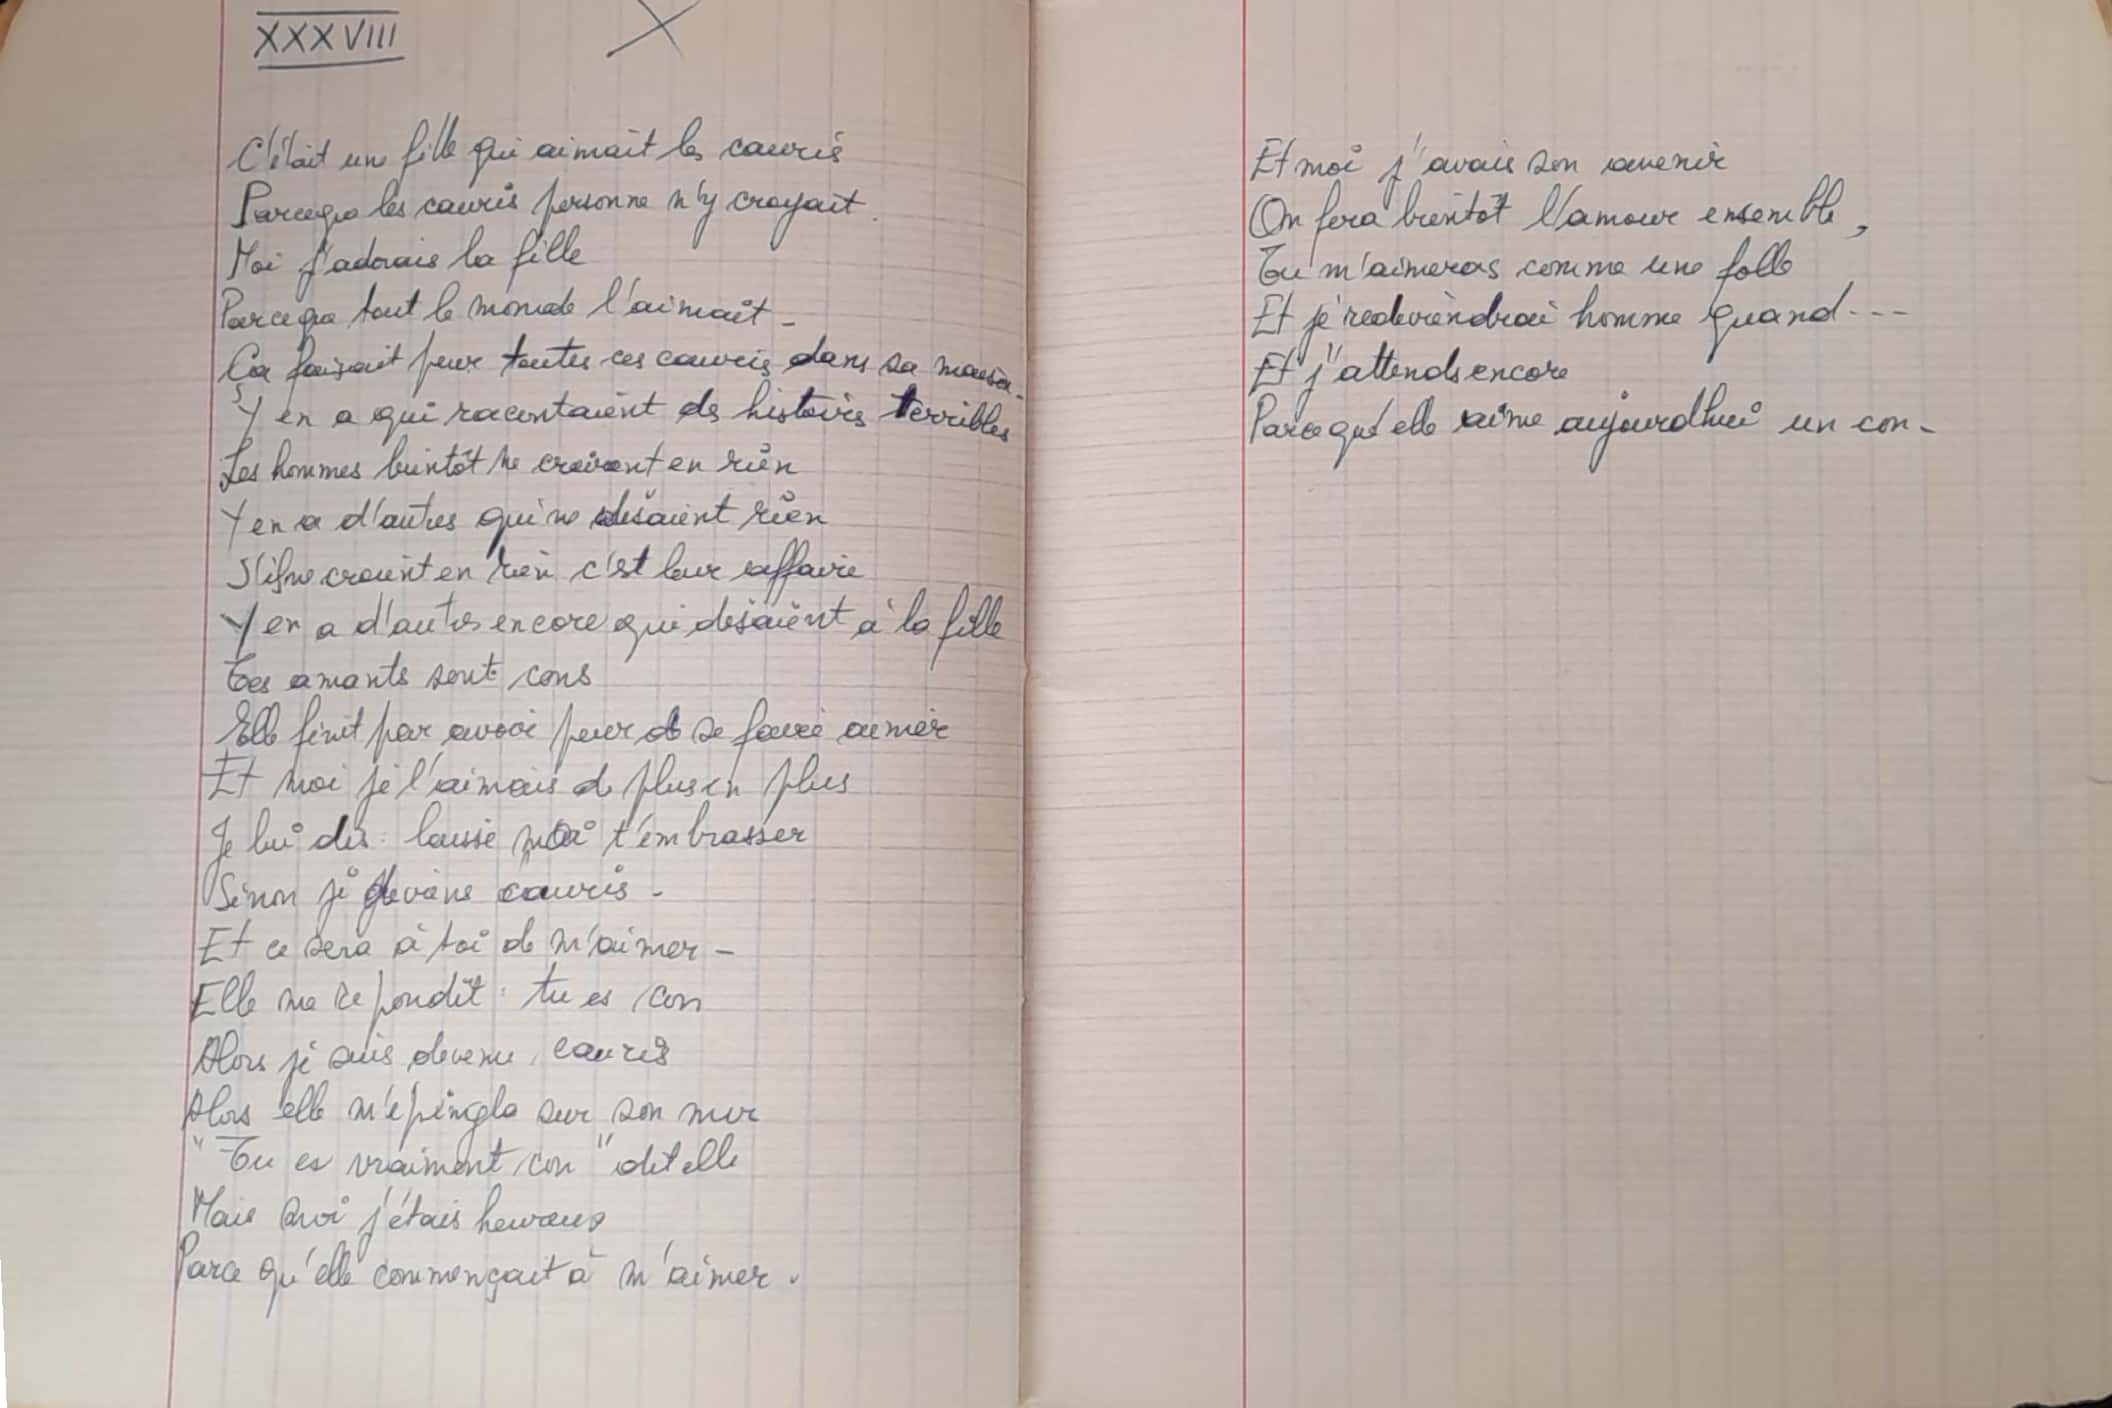 XXXVIII
X
C'était une fille qui aimait les cauris
Parceque les cauris personne n'y croyait.
Moi j'adorais la fille
Parceque tout le monde l'aimait -
Ça faisait peur toutes ces cauris dans sa maison -
Y en a qui racontaient des histoires terribles
Les hommes bientôt ne croiront en rien
Y en a d'autres qui ne disaient rien
S'ils ne croient en rien c'est leur affaire
Y en a d'autres encore qui disaient à la fille
Tes amants sont cons
Elle finit par avoir peur de se faire aimer
Et moi je l'aimais de plus en plus
Je lui dis : laisse moi t'embrasser
Sinon je deviens cauris -
Et ce sera à toi de m'aimer -
Elle me répondit : tu es con
Alors je suis devenu cauris
Alors elle m'épingla sur son mur
"Tu es vraiment con" dit elle
Mais moi j'étais heureux
Parce qu'elle commençait à m'aimer.
Et moi j'avais son avenir
On fera bientôt l'amour ensemble,
Tu m'aimeras comme une folle
Et je redeviendrai homme quand ...
Et j'attends encore
Parce qu'elle aime aujourd'hui un con -